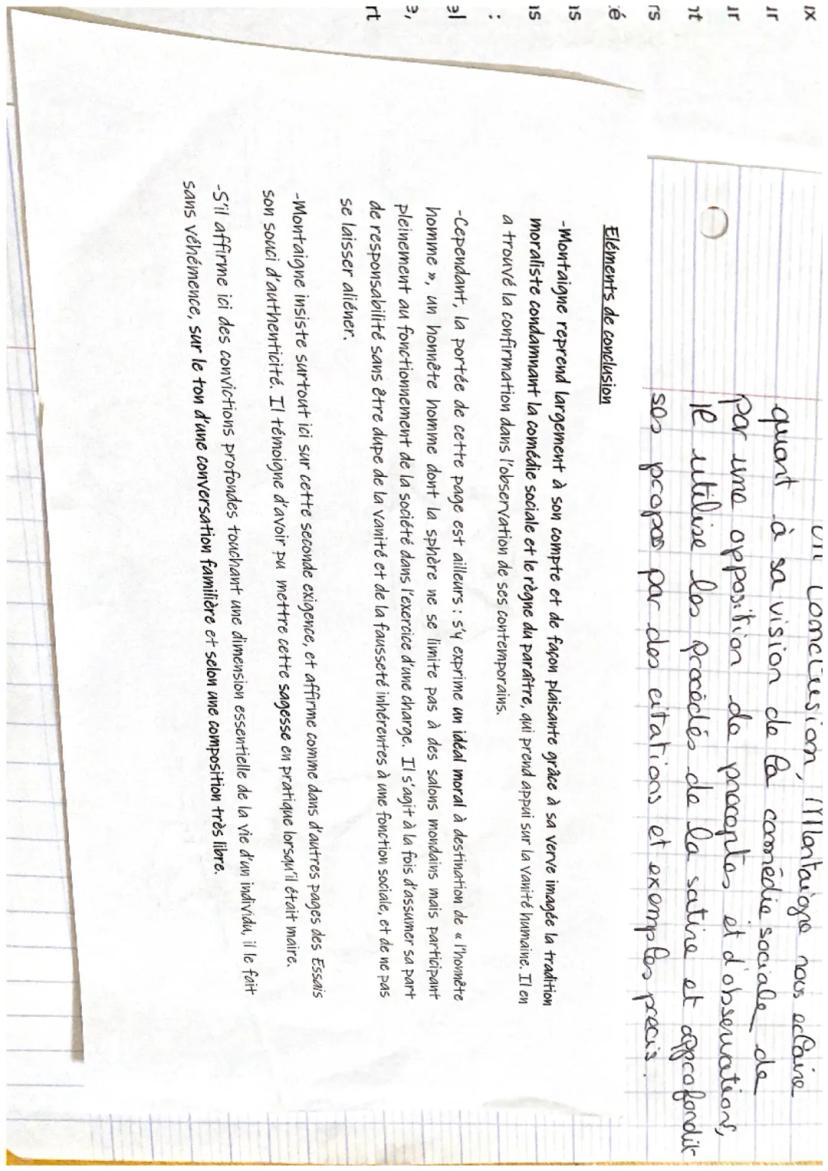 En conclusion, Montaigne nous éclaire
quant à sa vision de la comédie sociale de
par une opposition de preceptes et d'observations,
le utilise les procédés de la satire et approfondit
ses propos par des citations et exemples précis.
ix
ur
ur
nt
rs
é
is
is
:
el
e,
rt
Eléments de conclusion
-Montaigne reprend largement à son compte et de façon plaisante grâce à sa verve imagée la tradition
moraliste condamnant la comédie sociale et le règne du paraître, qui prend appui sur la vanité humaine. Il en
a trouvé la confirmation dans l'observation de ses contemporains.
-Cependant, la portée de cette page est ailleurs : s'y exprime un idéal moral à destination de « l'honnête
homme », un honnête homme dont la sphère ne se limite pas à des salons mondains mais participant
pleinement au fonctionnement de la société dans l'exercice d'une charge. Il s'agit à la fois d'assumer sa part
de responsabilité sans être dupe de la vanité et de la fausseté inhérentes à une fonction sociale, et de ne pas
se laisser aliéner.
-Montaigne insiste surtout ici sur cette seconde exigence, et affirme comme dans d'autres pages des Essais
son souci d'authenticité. Il témoigne d'avoir pu mettre cette sagesse en pratique lorsqu'il était maire.
-S'il affirme ici des convictions profondes touchant une dimension essentielle de la vie d'un individu, il le fait
sans véhémence, sur le ton d'une conversation familière et selon une composition très libre.